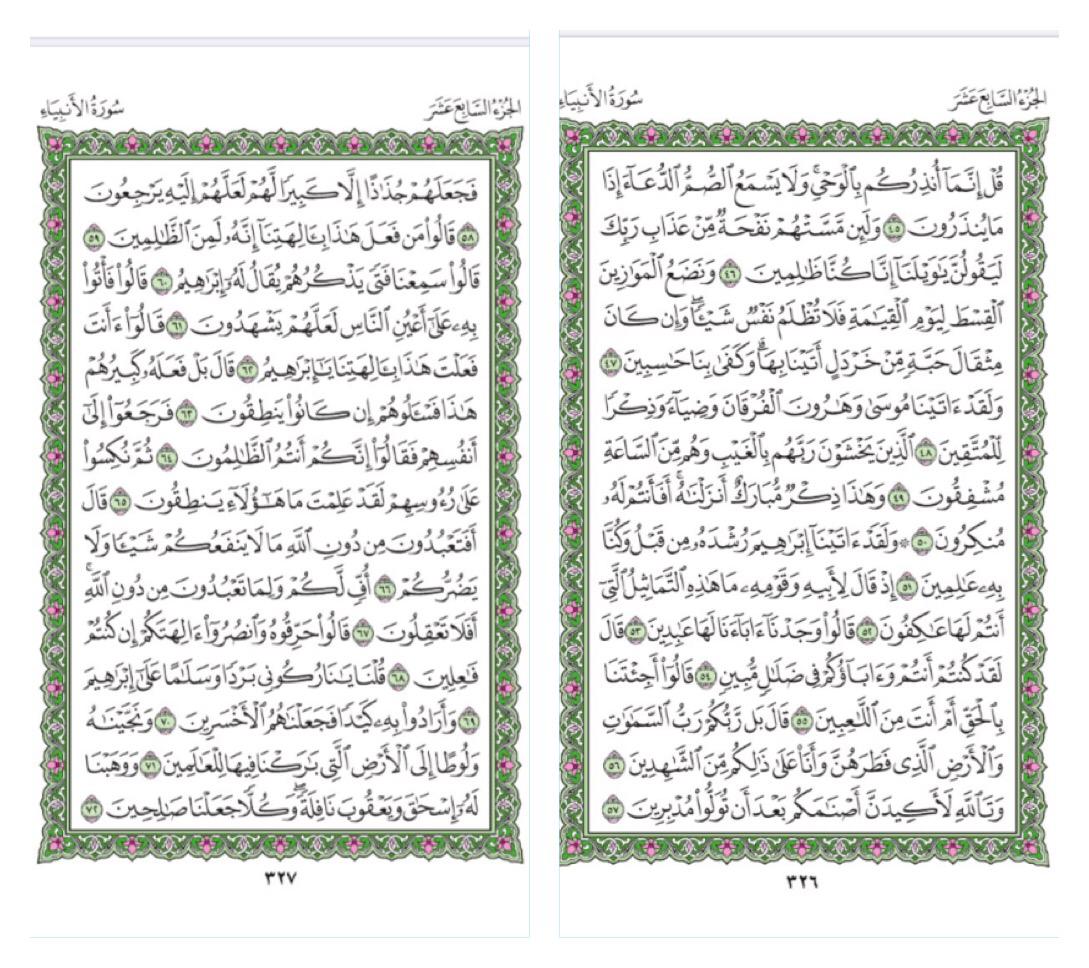 الجُزْءُ السَّابِعَ عَشَرَ
سُورَةُ الأَنبِيَاءِ
قُلْ إِنَّمَآ أُنذِرُكُم بِٱلْوَحْىِ ۚ وَلَا يَسْمَعُ ٱلصُّمُّ ٱلدُّعَآءَ إِذَا
مَا يُنذَرُونَ ٤٥ وَلَئِن مَّسَّتْهُمْ نَفْحَةٌ مِّنْ عَذَابِ رَبِّكَ
لَيَقُولُنَّ يَٰوَيْلَنَآ إِنَّا كُنَّا ظَٰلِمِينَ ٤٦ وَنَضَعُ ٱلْمَوَٰزِينَ
ٱلْقِسْطَ لِيَوْمِ ٱلْقِيَٰمَةِ فَلَا تُظْلَمُ نَفْسٌ شَيْـًٔا ۖ وَإِن كَانَ
مِثْقَالَ حَبَّةٍ مِّنْ خَرْدَلٍ أَتَيْنَا بِهَا ۗ وَكَفَىٰ بِنَا حَٰسِبِينَ ٤٧
وَلَقَدْ ءَاتَيْنَا مُوسَىٰ وَهَٰرُونَ ٱلْفُرْقَانَ وَضِيَآءً وَذِكْرًا
لِّلْمُتَّقِينَ ٤٨ ٱلَّذِينَ يَخْشَوْنَ رَبَّهُم بِٱلْغَيْبِ وَهُم مِّنَ ٱلسَّاعَةِ
مُشْفِقُونَ ٤٩ وَهَٰذَا ذِكْرٌ مُّبَارَكٌ أَنزَلْنَٰهُ ۚ أَفَأَنتُمْ لَهُۥ
مُنكِرُونَ ٥٠ ۞ وَلَقَدْ ءَاتَيْنَآ إِبْرَٰهِيمَ رُشْدَهُۥ مِن قَبْلُ وَكُنَّا
بِهِۦ عَٰلِمِينَ ٥١ إِذْ قَالَ لِأَبِيهِ وَقَوْمِهِۦ مَا هَٰذِهِ ٱلتَّمَاثِيلُ ٱلَّتِىٓ
أَنتُمْ لَهَا عَٰكِفُونَ ٥٢ قَالُوا۟ وَجَدْنَآ ءَابَآءَنَا لَهَا عَٰبِدِينَ ٥٣ قَالَ
لَقَدْ كُنتُمْ أَنتُمْ وَءَابَآؤُكُمْ فِى ضَلَٰلٍ مُّبِينٍ ٥٤ قَالُوٓا۟ أَجِئْتَنَا
بِٱلْحَقِّ أَمْ أَنتَ مِنَ ٱللَّٰعِبِينَ ٥٥ قَالَ بَل رَّبُّكُمْ رَبُّ ٱلسَّمَٰوَٰتِ
وَٱلْأَرْضِ ٱلَّذِى فَطَرَهُنَّ وَأَنَا۠ عَلَىٰ ذَٰلِكُم مِّنَ ٱلشَّٰهِدِينَ ٥٦
وَتَٱللَّهِ لَأَكِيدَنَّ أَصْنَٰمَكُم بَعْدَ أَن تُوَلُّوا۟ مُدْبِرِينَ ٥٧
٣٢٦
الجُزْءُ السَّابِعَ عَشَرَ
سُورَةُ الأَنبِيَاءِ
فَجَعَلَهُمْ جُذَٰذًا إِلَّا كَبِيرًا لَّهُمْ لَعَلَّهُمْ إِلَيْهِ يَرْجِعُونَ
٥٨ قَالُوا۟ مَن فَعَلَ هَٰذَا بِـَٔالِهَتِنَآ إِنَّهُۥ لَمِنَ ٱلظَّٰلِمِينَ ٥٩
قَالُوا۟ سَمِعْنَا فَتًى يَذْكُرُهُمْ يُقَالُ لَهُۥٓ إِبْرَٰهِيمُ ٦٠ قَالُوا۟ فَأْتُوا۟
بِهِۦ عَلَىٰٓ أَعْيُنِ ٱلنَّاسِ لَعَلَّهُمْ يَشْهَدُونَ ٦١ قَالُوٓا۟ ءَأَنتَ
فَعَلْتَ هَٰذَا بِـَٔالِهَتِنَا يَٰٓإِبْرَٰهِيمُ ٦٢ قَالَ بَلْ فَعَلَهُۥ كَبِيرُهُمْ
هَٰذَا فَسْـَٔلُوهُمْ إِن كَانُوا۟ يَنطِقُونَ ٦٣ فَرَجَعُوٓا۟ إِلَىٰٓ
أَنفُسِهِمْ فَقَالُوٓا۟ إِنَّكُمْ أَنتُمُ ٱلظَّٰلِمُونَ ٦٤ ثُمَّ نُكِسُوا۟
عَلَىٰ رُءُوسِهِمْ لَقَدْ عَلِمْتَ مَا هَٰٓؤُلَآءِ يَنطِقُونَ ٦٥ قَالَ
أَفَتَعْبُدُونَ مِن دُونِ ٱللَّهِ مَا لَا يَنفَعُكُمْ شَيْـًٔا وَلَا
يَضُرُّكُمْ ٦٦ أُفٍّ لَّكُمْ وَلِمَا تَعْبُدُونَ مِن دُونِ ٱللَّهِ ۖ
أَفَلَا تَعْقِلُونَ ٦٧ قَالُوا۟ حَرِّقُوهُ وَٱنصُرُوٓا۟ ءَالِهَتَكُمْ إِن كُنتُمْ
فَٰعِلِينَ ٦٨ قُلْنَا يَٰنَارُ كُونِى بَرْدًا وَسَلَٰمًا عَلَىٰٓ إِبْرَٰهِيمَ
٦٩ وَأَرَادُوا۟ بِهِۦ كَيْدًا فَجَعَلْنَٰهُمُ ٱلْأَخْسَرِينَ ٧٠ وَنَجَّيْنَٰهُ
وَلُوطًا إِلَى ٱلْأَرْضِ ٱلَّتِى بَٰرَكْنَا فِيهَا لِلْعَٰلَمِينَ ٧١ وَوَهَبْنَا
لَهُۥٓ إِسْحَٰقَ وَيَعْقُوبَ نَافِلَةً ۖ وَكُلًّا جَعَلْنَا صَٰلِحِينَ ٧٢
٣٢٧